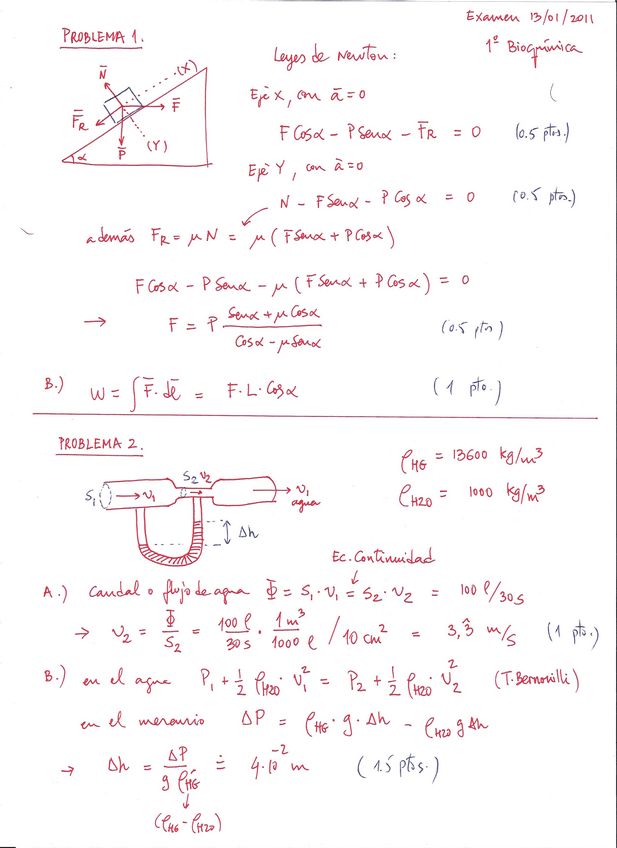 Examen 13/01/2011
PROBLEMA 1.
1º Bioquímica
Leyes de Newton:
N̄ (X) F̄ F̄_R P̄ (Y) α
Eje X, con ā = 0
F Cosα − P Senα − F̄_R = 0 (0.5 ptos.)
Eje Y, con ā = 0
N − F Senα − P Cosα = 0 (0.5 ptos.)
además F_R = μ N = μ (F Senα + P Cosα)
F Cosα − P Senα − μ (F Senα + P Cosα) = 0
→ F = P (Senα + μ Cosα) / (Cosα − μ Senα) (0.5 ptos)
B.) W = ∫ F̄ · dē = F · L · Cosα (1 pto.)
PROBLEMA 2.
ρ_HG = 13600 kg/m³
ρ_H2O = 1000 kg/m³
S₁ v₁ S₂ v₂ v₁ agua
Δh
Ec. Continuidad
A.) Caudal o flujo de agua Φ = S₁ · v₁ = S₂ · v₂ = 100 ℓ/30 s
→ v₂ = Φ / S₂ = 100 ℓ / 30 s · 1 m³ / 1000 ℓ / 10 cm² = 3,3̂ m/s (1 pto.)
B.) en el agua P₁ + ½ ρ_H2O · v₁² = P₂ + ½ ρ_H2O · v₂² (T. Bernouilli)
en el mercurio ΔP = ρ_HG · g · Δh − ρ_H2O g Δh
→ Δh = ΔP / g ρ_HG ≐ 4·10⁻² m (1.5 ptos.)
(ρ_HG − ρ_H2O)